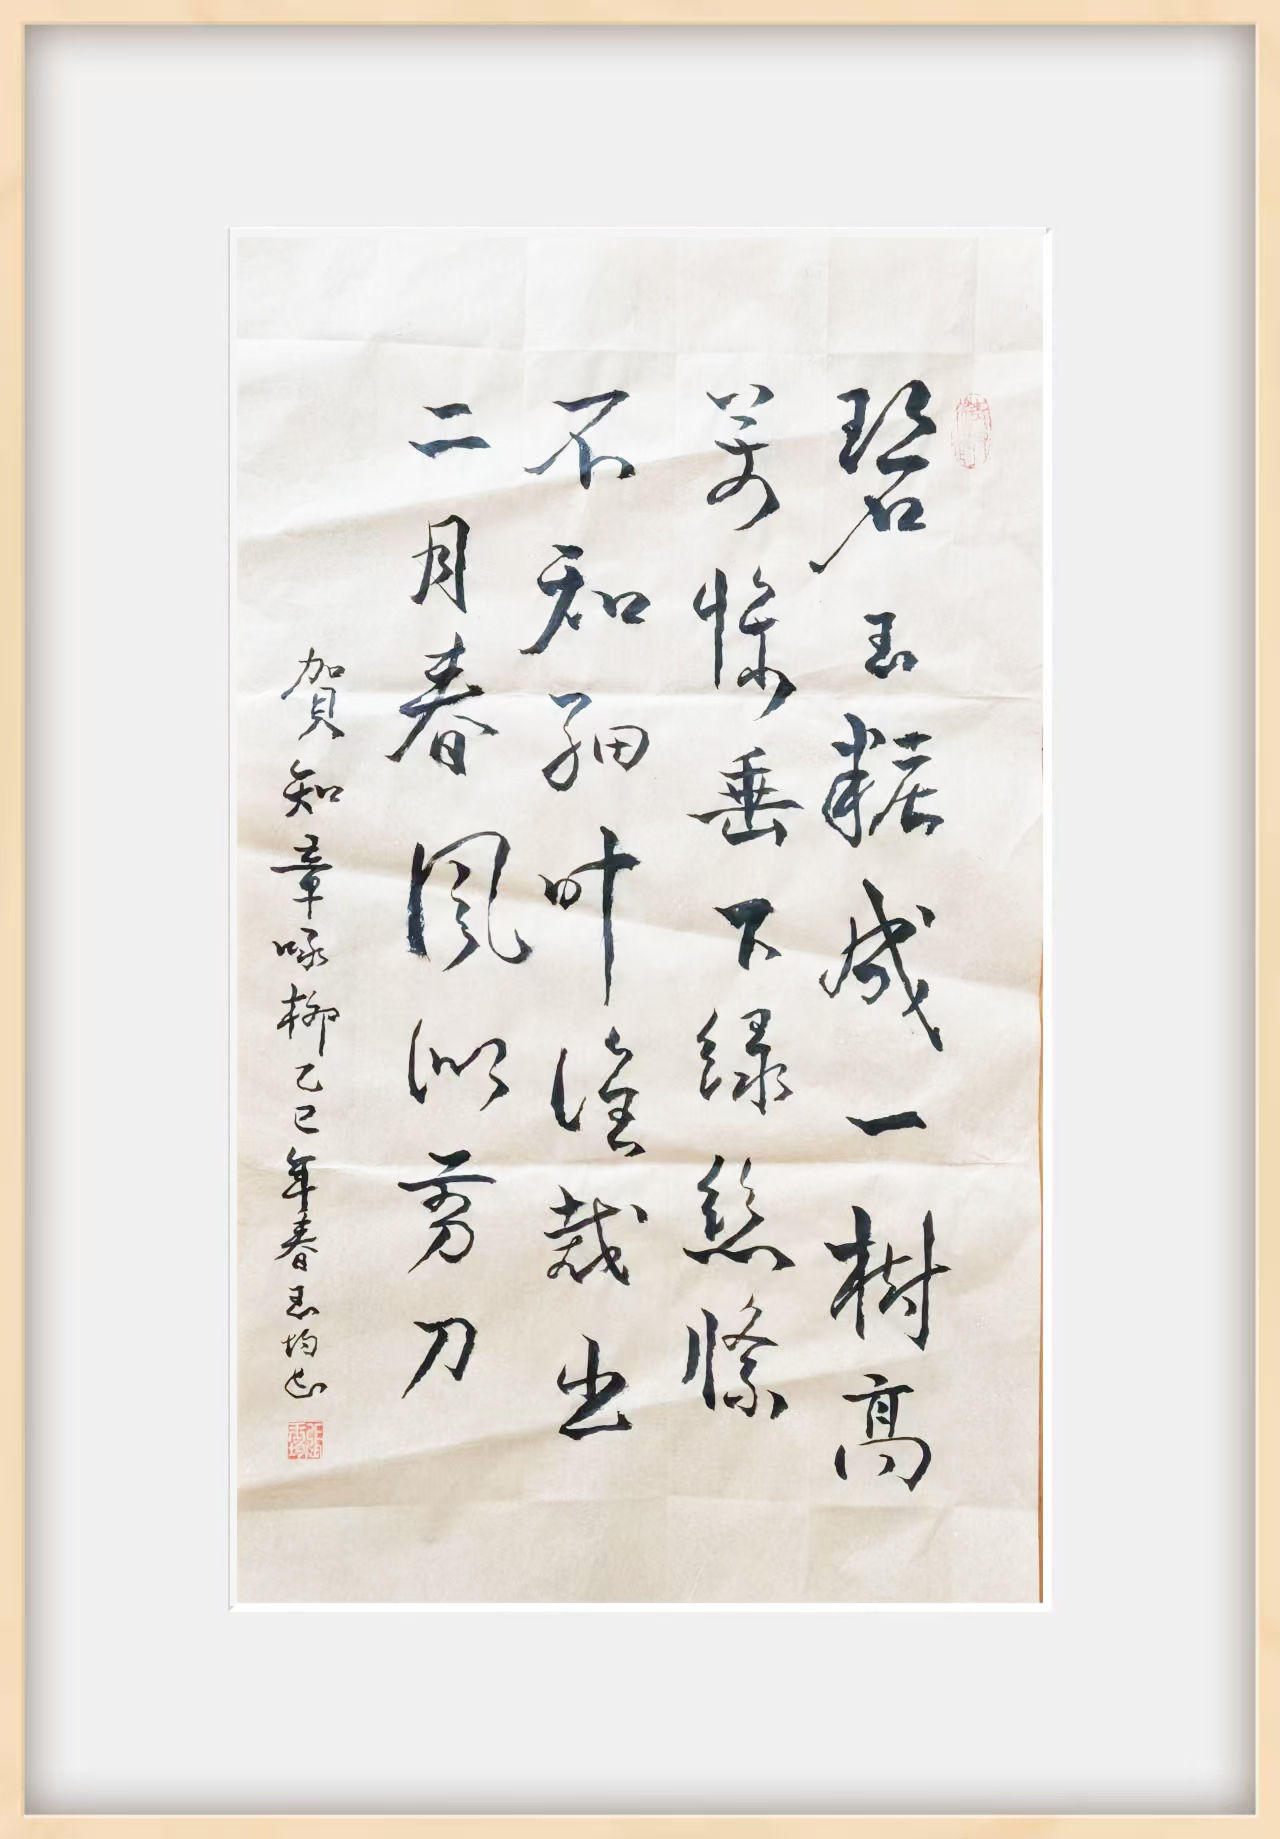 碧玉粧成一樹高
萬條垂下綠絲絛
不知細叶誰裁出
二月春風似剪刀
賀知章咏柳乙巳年春玉均